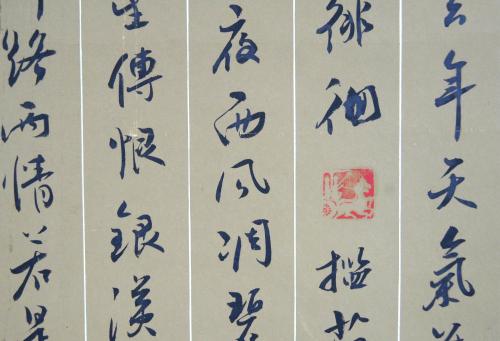 去年天氣
徘徊 檻
夜西風凋碧
星傳恨銀漢
路兩情若是